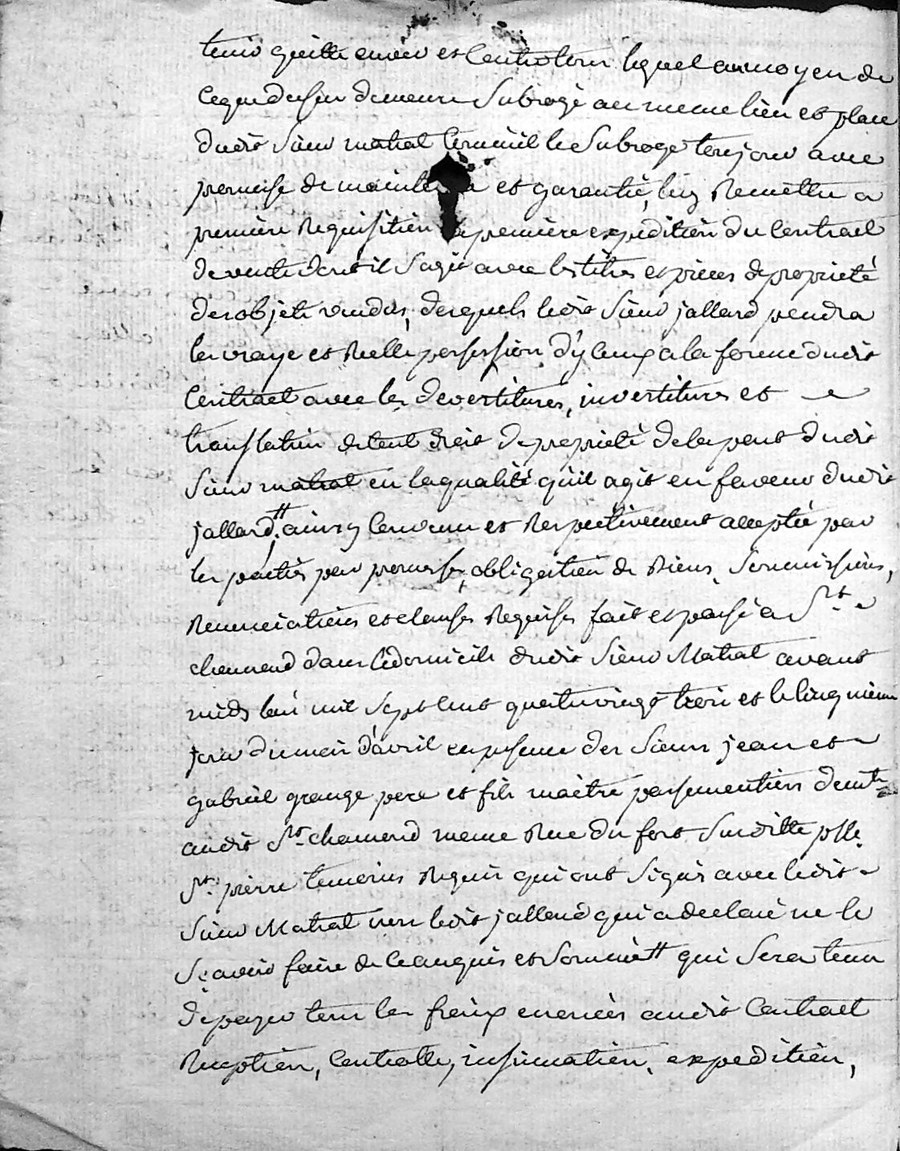 tenir quitte envers et contre tous lequel au moyen de
ce que dessus demeure subrogé au meme lieu et place
dudit Sieur matrat comme il le subroge tenjour avec
promesse de mainte et garantie, luy Remettre a
première Requisition la première expédition du Contract
de vente dont il s'agit avec les titres et pieces de proprieté
des objets vendus, desquels ledit Sieur jallard prendra
la vraye et Réelle possession d'yceux a la forme dudit
Contract avec les devertitures, invertitures et
translation de tout droit de proprieté de la part dudit
Sieur matrat en la qualité qu'il agit en faveur dudit
jallard. ainsy convenu et Respectivement accepté par
les parties par promesse, obligation de Biens, Soumissions,
Renonciations et clauses Requises fait et passé a St
chamond dans le domicile dudit Sieur Matrat avant
midy l'an mil sept cent quatrevingt trois et le cinquieme
jour du mois d'avril en presence des Sieurs jean et
gabriel grange pere et fils maitre passementiers demt
audit St. chamond meme Rue du fort susditte psse
St. pierre temoins Requis qui ont signés avec ledit
Sieur Matrat non ledit jallard qui a declaré ne le
sçavoir faire de ce enquis et sommé qui sera tenu
de payer tous les fraix enoncés audit Contract
Reception, Controlle, insinuation, expedition,